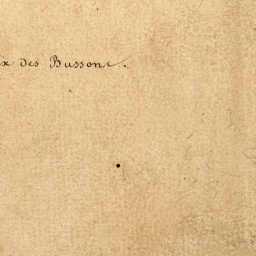 x des Bussone.